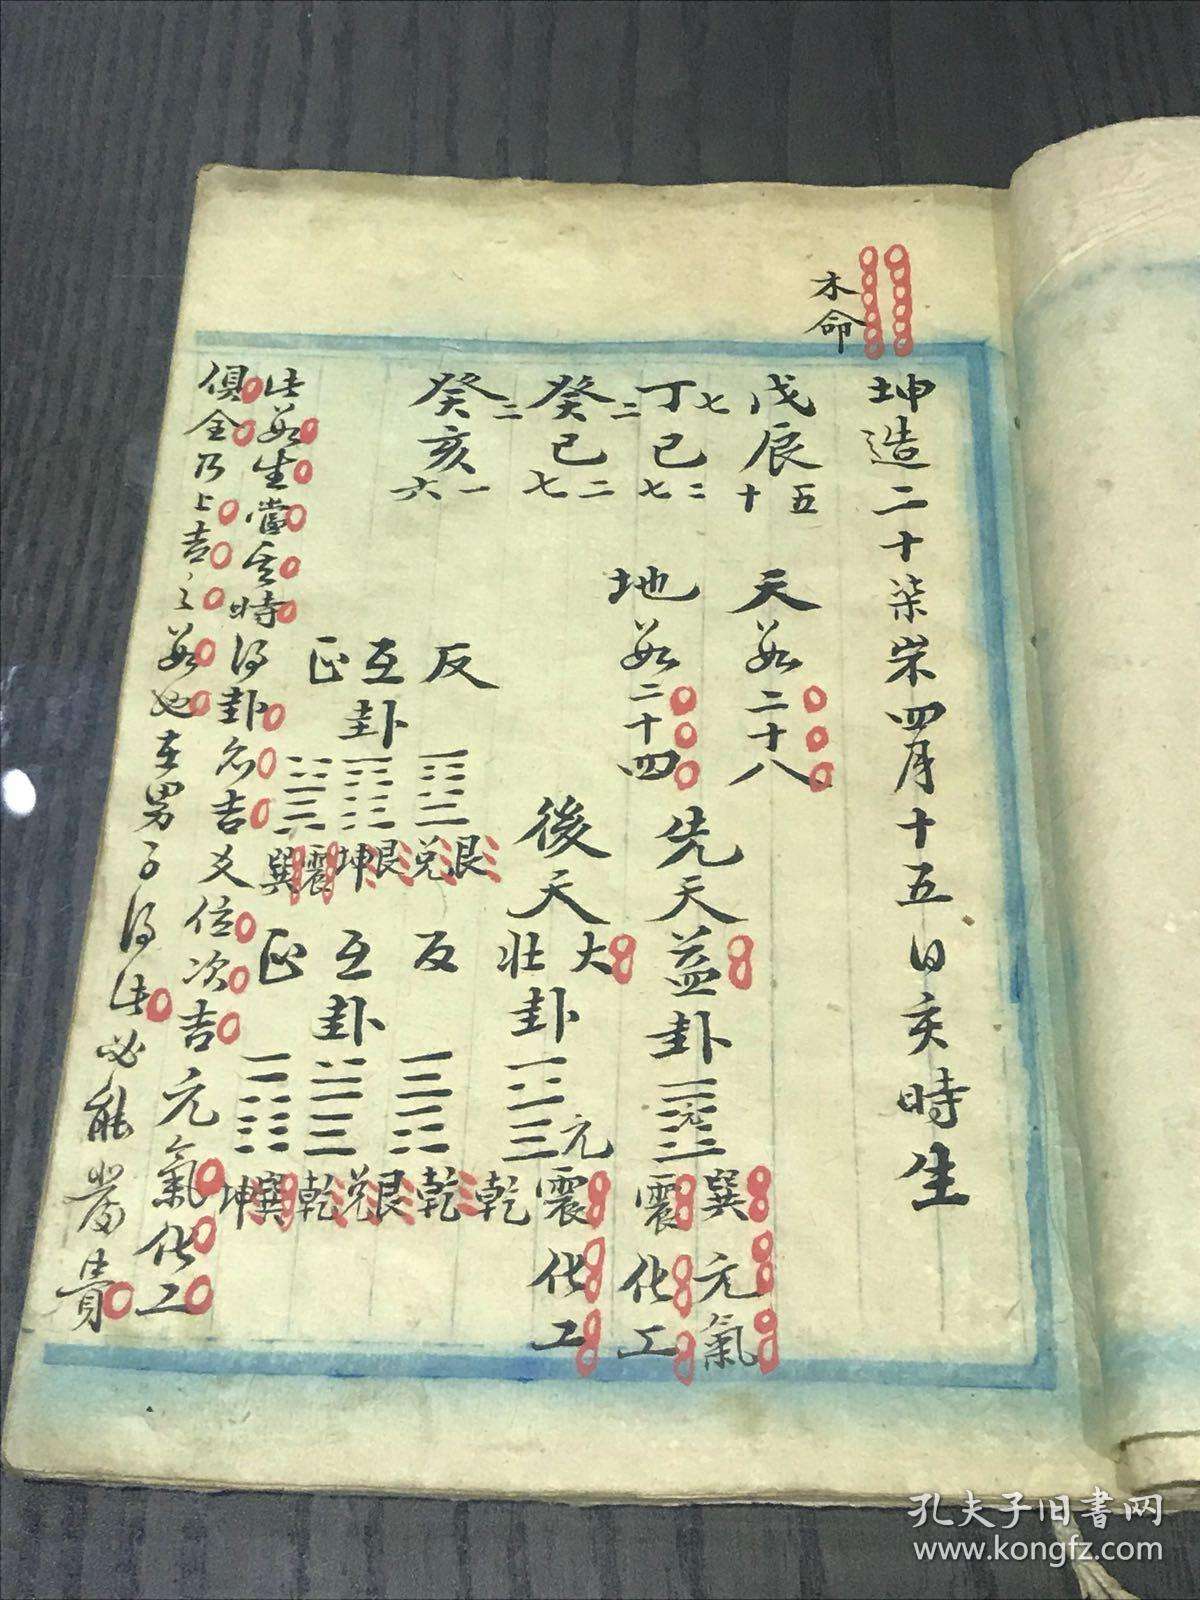 木命
坤造二十柒岁四月十五日亥時生
戊辰 五十
丁七 巳二七
癸二 巳二七
癸二 亥一六
天数二十八
地数二十四
先天益卦 元 巽震 元氣 化工
後天大壯卦 元 震乾 化工
反 艮兌
互卦 艮坤
正 震巽
反 乾
互卦 兌乾
正 巽坤
此数生當其時得卦名吉爻位次吉元氣化工
俱全乃上吉之数也在男子得此必能富貴
孔夫子旧书网
www.kongfz.com